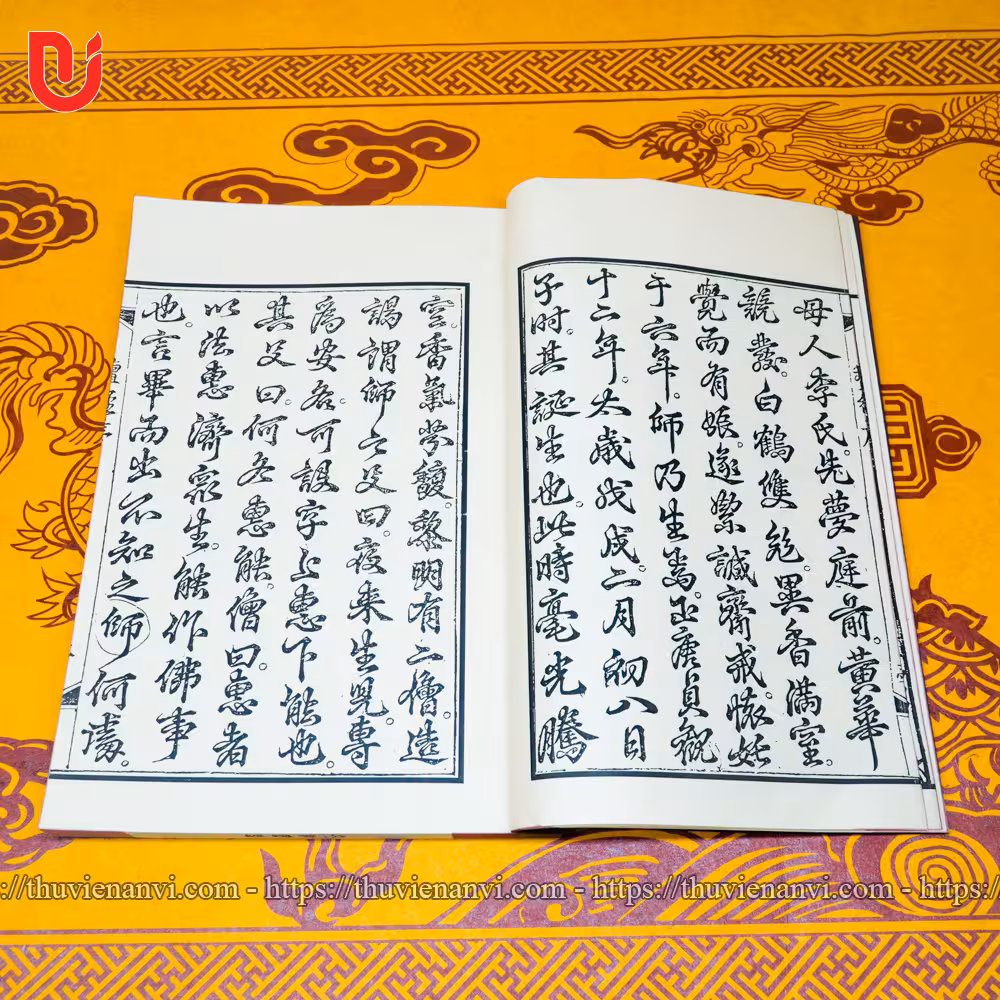 母人李氏。先夢庭前。黃華
競發。白鶴雙飛。異香滿室。
覺而有娠。遂絜誠齋戒。懷妊
于六年。師乃生焉。正唐貞觀
十二年太歲戊戌二月初八日
子时。其誕生也。此時毫光騰
空。香氣芬馥。黎明有二僧造
謁謂師之父曰。夜来生兒。專
爲安名。可設字上惠下能也。
其父曰。何名惠能。僧曰。惠者
以法惠濟衆生。能作佛事
也。言畢而出不知之師何處。
://thuvienanvi.com - https://thuvienanvi.com - https://thuvienanvi.com - https:/